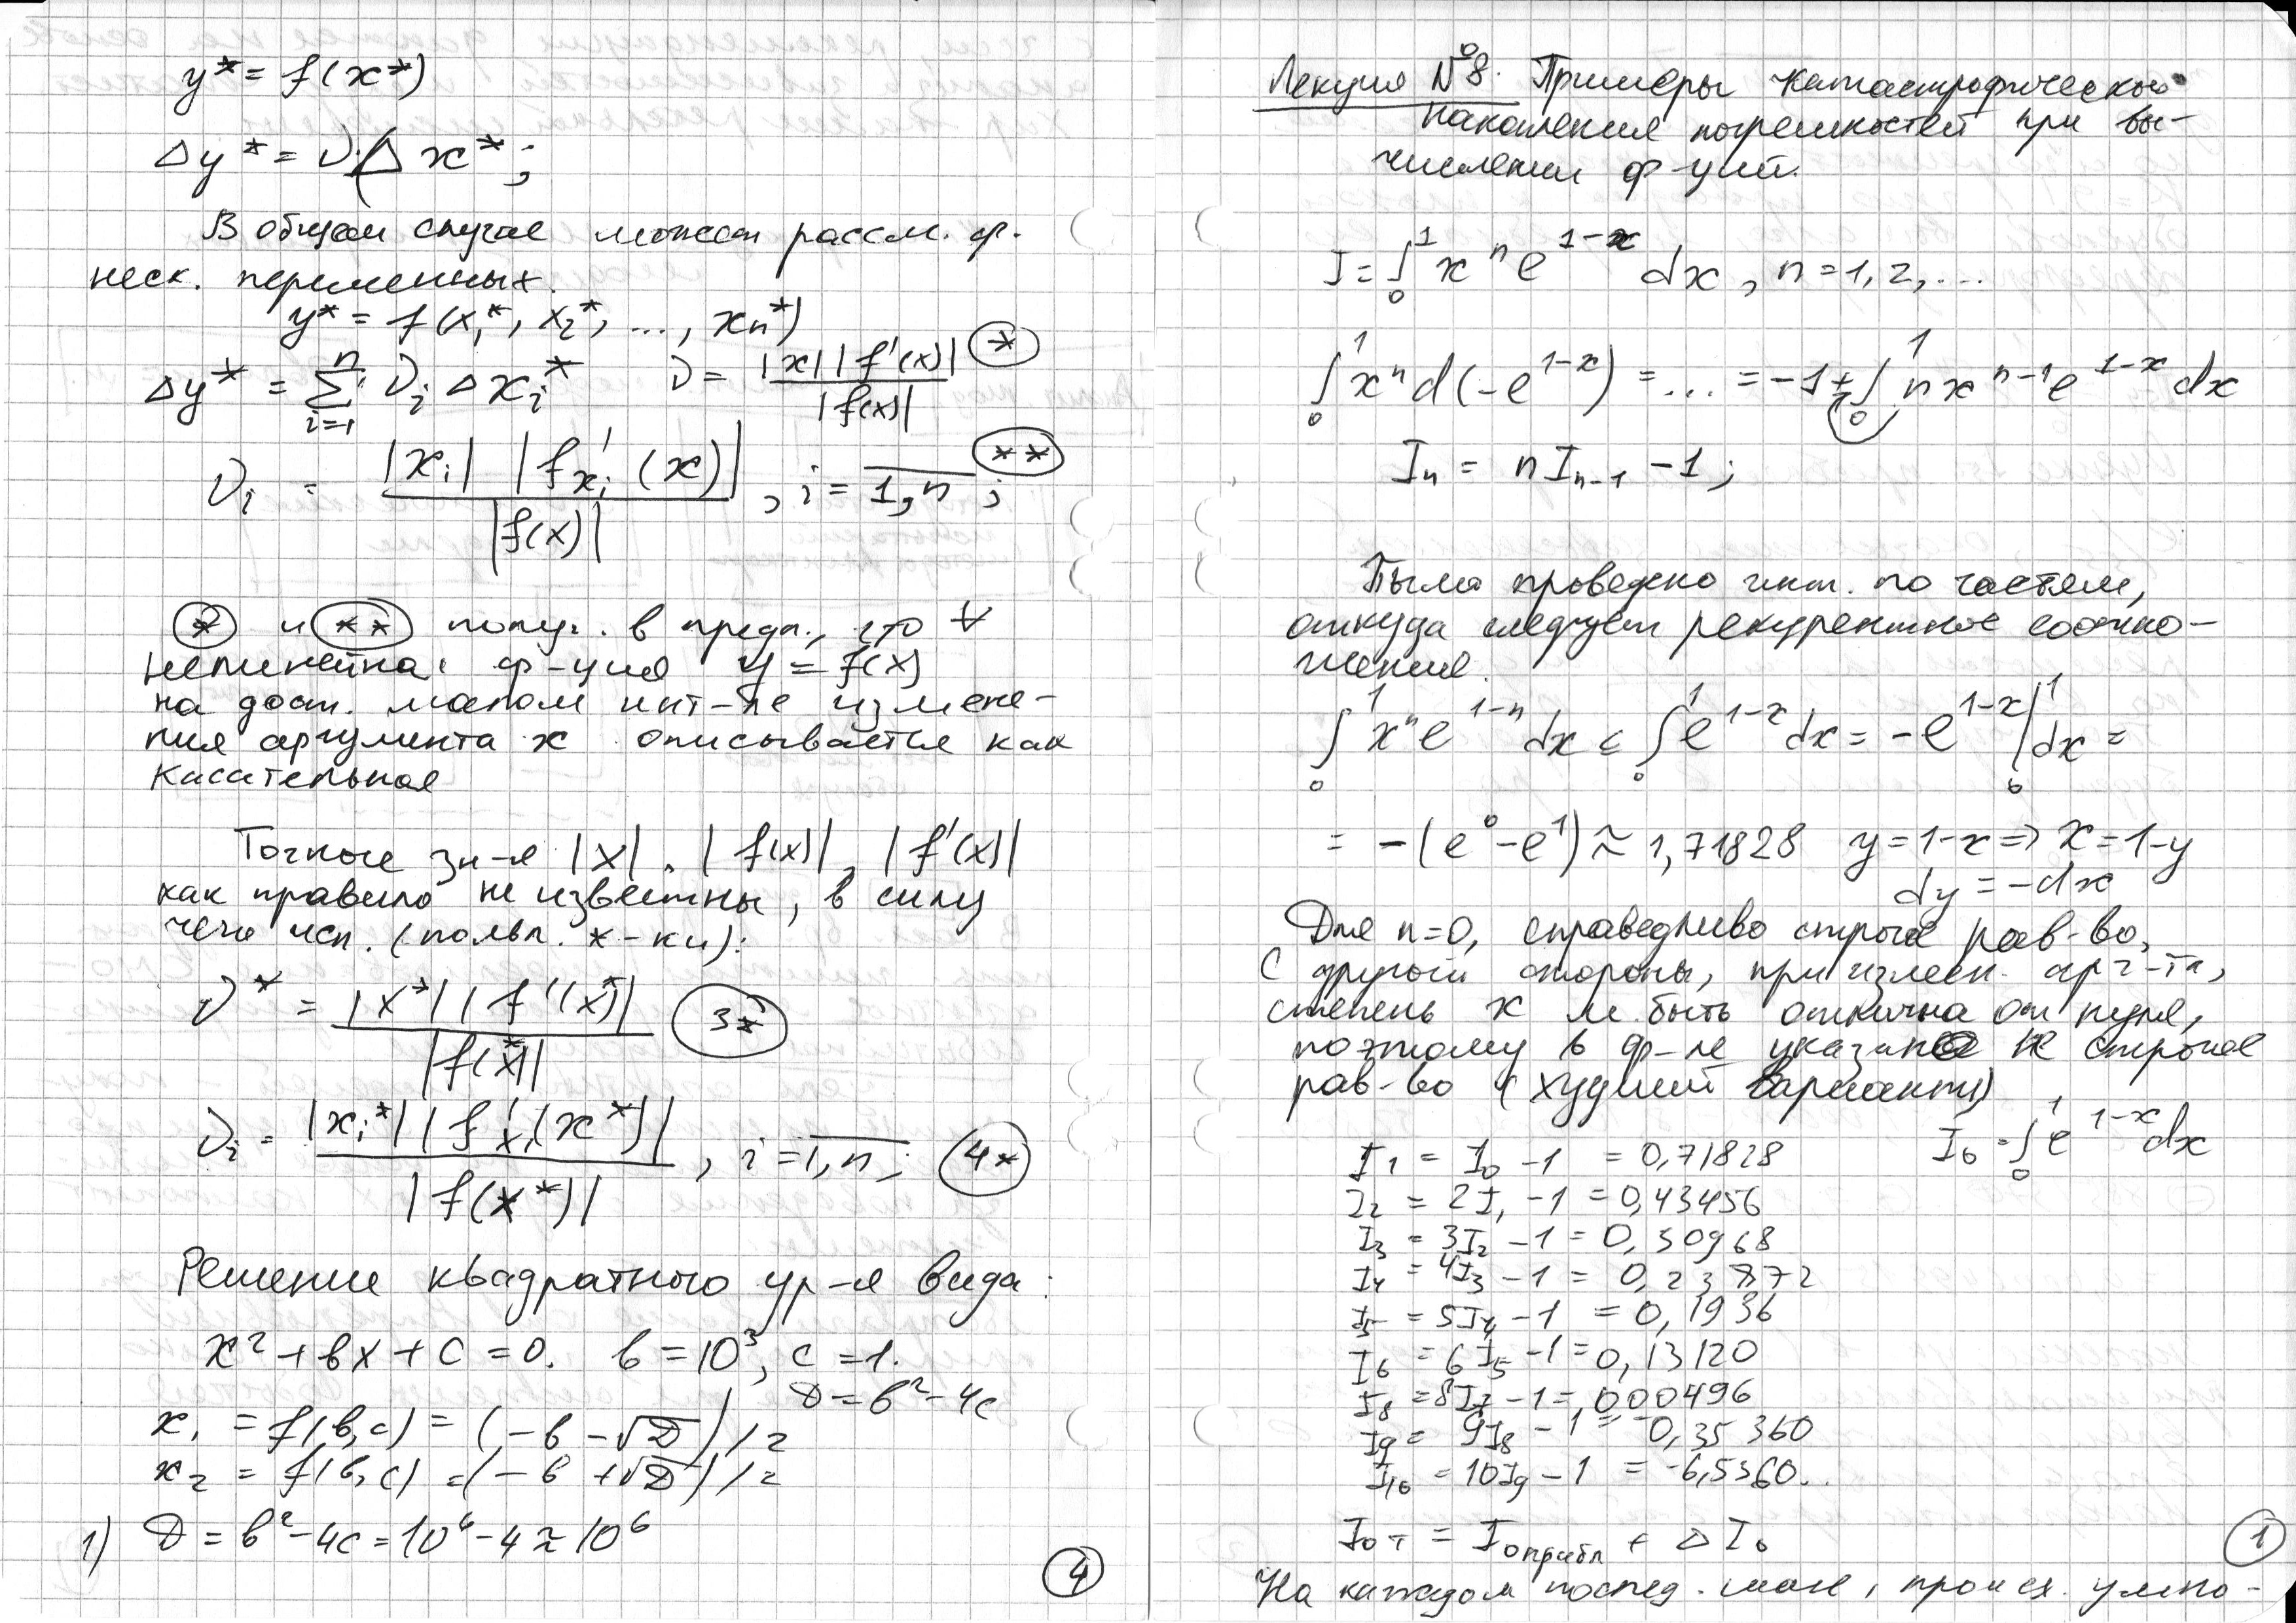 y* = f(x*)
Δy* = ν·(Δx*;
В общем случае может рассм. ф.
неск. переменных.
y* = f(x₁*, x₂*, ..., xn*)
Δy* = Σ_{i=1}^{n} νi Δxi*   ν = |x| |f'(x)| / |f(x)|   (*)
νi = |xi| |f'xi (x)| / |f(x)| , i = 1,n ;   (**)
(*) и (**) получ. в предп., что ∀
нелинейная ф-ция y = f(x)
на дост. малом инт-ле измене-
ния аргумента x описывается как
касательная
Точные зн-я |x|, |f(x)|, |f'(x)|
как правило не известны, в силу
чего исп. (польз. *-ки):
ν* = |x*| |f'(x*)| / |f(x*)|   (3*)
νi = |xi*| |f'xi(x*)| / |f(x*)| , i = 1,n ;   (4*)
Решение квадратного ур-я вида:
x² + bx + c = 0.   b = 10³, c = 1.
D = b² - 4c
x₁ = f(b,c) = (-b - √D)/2
x₂ = f(b,c) = (-b + √D)/2
1) D = b² - 4c = 10⁶ - 4 ≈ 10⁶
4
Лекция №8. Примеры катастрофического
накопления погрешностей при вы-
числении ф-ций.
I = ∫₀¹ xⁿ e^{1-x} dx , n = 1, 2, ...
∫₀¹ xⁿ d(-e^{1-x}) = ... = -1 + ∫₀¹ n x^{n-1} e^{1-x} dx
In = nI_{n-1} - 1;
Было проведено инт. по частям,
откуда следует рекурентное соотно-
шение.
∫₀¹ xⁿ e^{1-n} dx ≤ ∫₀¹ e^{1-x} dx = -e^{1-x} |₀¹ dx =
= -(e⁰ - e¹) ≈ 1,71828   y = 1-x => x = 1-y
dy = -dx
Для n=0, справедливо строгое рав-во,
с другой стороны, при измен. арг-та,
степень x м. быть отлична от нуля,
поэтому в ф-ле указано не строгое
рав-во (худший вариант)
I₀ = ∫₀¹ e^{1-x} dx
I₁ = I₀ - 1 = 0,71828
I₂ = 2I₁ - 1 = 0,43456
I₃ = 3I₂ - 1 = 0,30968
I₄ = 4I₃ - 1 = 0,23872
I₅ = 5I₄ - 1 = 0,1936
I₆ = 6I₅ - 1 = 0,13120
I₈ = 8I₇ - 1 = ,000496
I₉ = 9I₈ - 1 = -0,35360
I₁₀ = 10I₉ - 1 = -6,5360..
I₀т = I₀прибл + ΔI₀
На каждом послед. шаге, происх. умно-
1